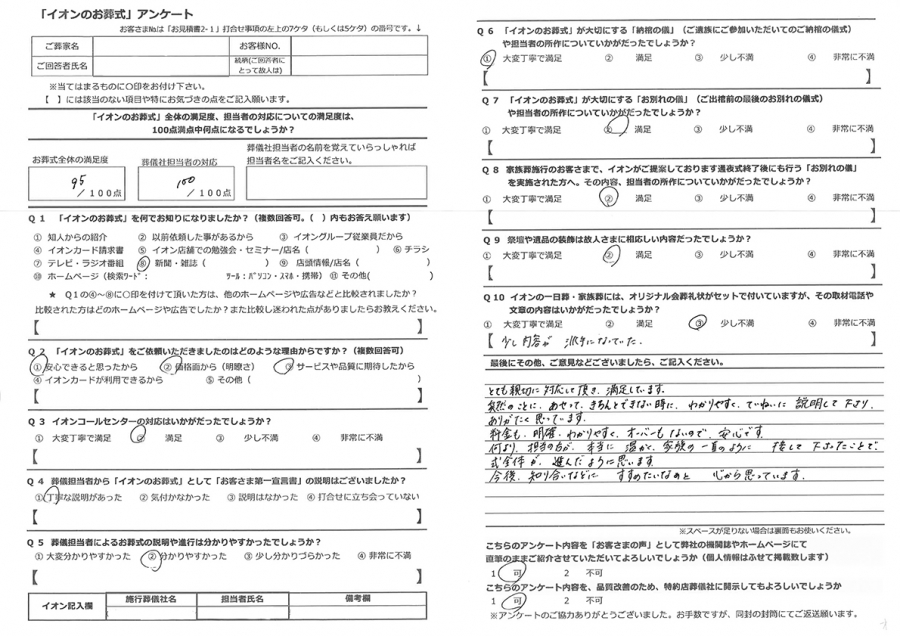 「イオンのお葬式」アンケート
お客さま№は「お見積書2-1」打合せ事項の左上の7ケタ（もしくは5ケタ）の番号です。↓
ご葬家名
お客様NO.
ご回答者氏名
続柄(ご回答者にとって故人は)
※当てはまるものに○印をお付け下さい。
【　】には該当のない項目や特にお気づきの点をご記入願います。
「イオンのお葬式」全体の満足度、担当者の対応についての満足度は、
100点満点中何点になるでしょうか？
お葬式全体の満足度
葬儀社担当者の対応
葬儀社担当者の名前を覚えていらっしゃれば
担当者名をご記入ください。
95 /100点
100 /100点
Q１ 「イオンのお葬式」を何でお知りになりましたか？（複数回答可。(　) 内もお答え願います）
① 知人からの紹介　② 以前依頼した事があるから　③ イオングループ従業員だから
④ イオンカード請求書　⑤ イオン店舗での勉強会・セミナー/店名（　）　⑥ チラシ
⑦ テレビ・ラジオ番組　⑧ 新聞・雑誌（　）　⑨ 店頭情報/店名（　）
⑩ ホームページ（検索ﾜｰﾄﾞ：　ﾂｰﾙ：ﾊﾟｿｺﾝ・ｽﾏﾎ・携帯）　⑪ その他(　)
★ Q１の④～⑧に○印を付けて頂いた方は、他のホームページや広告などと比較されましたか？
比較された方はどのホームページや広告でしたか？また比較し迷われた点がありましたらお教えください。
【　】
Q２ 「イオンのお葬式」をご依頼いただきましたのはどのような理由からですか？（複数回答可）
① 安心できると思ったから　② 価格面から（明瞭さ）　③ サービスや品質に期待したから
④ イオンカードが利用できるから　⑤ その他（　）
【　】
Q３ イオンコールセンターの対応はいかがだったでしょうか？
① 大変丁寧で満足　② 満足　③ 少し不満　④ 非常に不満
【　】
Q４ 葬儀担当者から「イオンのお葬式」として「お客さま第一宣言書」の説明はございましたか？
① 丁寧な説明があった　② 気付かなかった　③ 説明はなかった　④ 打合せに立ち会っていない
【　】
Q５ 葬儀担当者によるお葬式の説明や進行は分かりやすかったでしょうか？
① 大変分かりやすかった　② 分かりやすかった　③ 少し分かりづらかった　④ 非常に不満
【　】
イオン記入欄
施行葬儀社名
担当者氏名
備考欄
Q６ 「イオンのお葬式」が大切にする「納棺の儀」（ご遺族にご参加いただいてのご納棺の儀式）
や担当者の所作についていかがだったでしょうか？
① 大変丁寧で満足　② 満足　③ 少し不満　④ 非常に不満
【　】
Q７ 「イオンのお葬式」が大切にする「お別れの儀」（ご出棺前の最後のお別れの儀式）
や担当者の所作についていかがだったでしょうか？
① 大変丁寧で満足　② 満足　③ 少し不満　④ 非常に不満
【　】
Q８ 家族葬施行のお客さまで、イオンがご提案しております通夜式終了後にも行う「お別れの儀」
を実施された方へ。その内容、担当者の所作についていかがだったでしょうか？
① 大変丁寧で満足　② 満足　③ 少し不満　④ 非常に不満
【　】
Q９ 祭壇や遺品の装飾は故人さまに相応しい内容だったでしょうか？
① 大変丁寧で満足　② 満足　③ 少し不満　④ 非常に不満
【　】
Q10 イオンの一日葬・家族葬には、オリジナル会葬礼状がセットで付いていますが、その取材電話や
文章の内容はいかがだったでしょうか？
① 大変丁寧で満足　② 満足　③ 少し不満　④ 非常に不満
【 少し内容が になっていた。
最後にその他、ご意見などございましたら、ご記入ください。
とても親切に対応して頂き、満足しています。
突然のことに、あせって、きちんとできない時に、わかりやすく、ていねいに 説明して下さり、
ありがたく思っています。
料金も、明確、わかりやすく、オーバーもないので、安心です。
何より、担当の方が、本当に 温かく、家族の一員のように 接して下さったことで、
式全体が、進んだように思います。
今後、知り合いなどに すすめたいなあと 心から思っています。
※スペースが足りない場合は裏面もお使いください。
こちらのアンケート内容を「お客さまの声」として弊社の機関誌やホームページにて
直筆のままご紹介させていただいてよろしいでしょうか（個人情報はふせて掲載致します）
1 可　2 不可
こちらのアンケート内容を、品質改善のため、特約店葬儀社に開示してもよろしいでしょうか
1 可　2 不可
※アンケートのご協力ありがとうございました。お手数ですが、同封の封筒にてご返送願います。